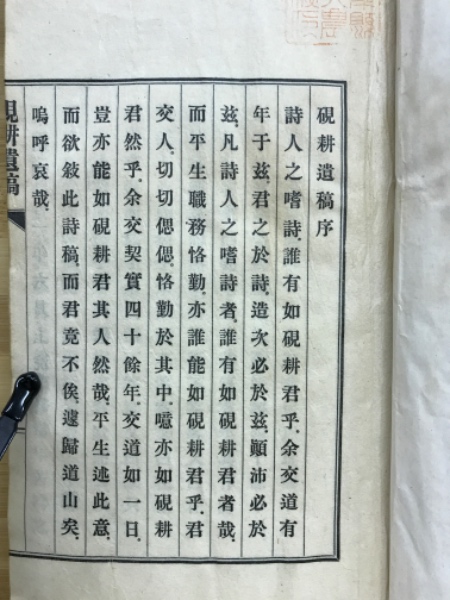 硯耕遺稿序
詩人之嗜詩、誰有如硯耕君乎、余交道有
年于玆、君之於詩、造次必於玆、顚沛必於
玆、凡詩人之嗜詩者、誰有如硯耕君者哉、
而平生職務恪勤、亦誰能如硯耕君乎、君
交人、切切偲偲、恪勤於其中、噫亦如硯耕
君然乎、余交契實四十餘年、交道如一日、
豈亦能如硯耕君其人然哉、平生述此意、
而欲敍此詩稿、而君竟不俟、遽歸道山矣、
嗚呼哀哉、
硯耕遺稿